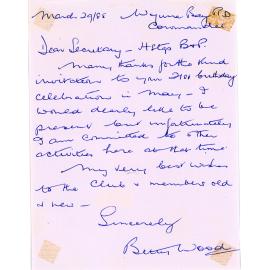 March 29/88 Wynne Bay RD
Coromandel
Dear Secretary -
Many thanks for the kind
invitation to your 21st birthday
celebration in May - I
would dearly like to be
present but unfortunately
I am committed to other
activities here at that time
My very best wishes
to the Club & members old
& new -
Sincerely
Betty Wood